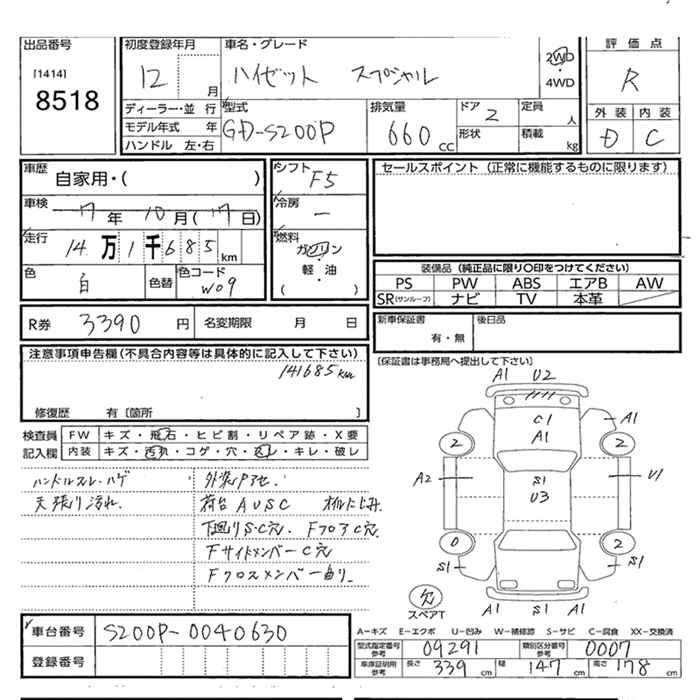 出品番号
[1414]
8518
初度登録年月
12 月
車名・グレード
ハイゼット スペシャル
2WD
・
4WD
評価点
R
外装 内装
D C
ディーラー・並行
モデル年式 年
ハンドル 左・右
型式
GD-S200P
排気量
660 cc
ドア 2
形状
定員 人
積載 kg
車歴
自家用・( )
車検
7年 10月(17日)
走行
14万1千685 km
色
白
色替
色コード
W09
シフト F5
冷房 ー
燃料
ガソリン
・
軽・油
( )
セールスポイント (正常に機能するものに限ります)
装備品 (純正品に限り○印をつけてください)
PS PW ABS エアB AW
SR(サンルーフ) ナビ TV 本革
R券 3390 円
名変期限 月 日
新車保証書
有・無
後日品
[保証書は事務局へ提出して下さい]
注意事項申告欄(不具合内容等は具体的に記入して下さい)
141685km
修復歴 有〔箇所 〕
検査員
記入欄
FW キズ・飛石・ヒビ割・リペア跡・X要
内装 キズ・汚れ・コゲ・穴・スレ・キレ・破レ
ハンドルスレ・ハゲ
天張り汚れ.
外装Pアセ.
荷台AUSC オイルにじみ.
下廻りS・C穴. FフロアC穴.
FサイドメンバーC穴
Fクロスメンバー曲り.
A1 U2
C1
A1
A1
2 2
A2
S1
U3
U1
0 2
S1 S1
欠
スペアT
A1 S1 A1
A-キズ E-エクボ U-凹み W-補修跡 S-サビ C-腐食 XX-交換済
車台番号
S200P-0040630
登録番号
型式指定番号
参考
09291
類別区分番号
参考
0007
車庫証明用
参考
長さ 339 cm
幅 147 cm
高さ 178 cm